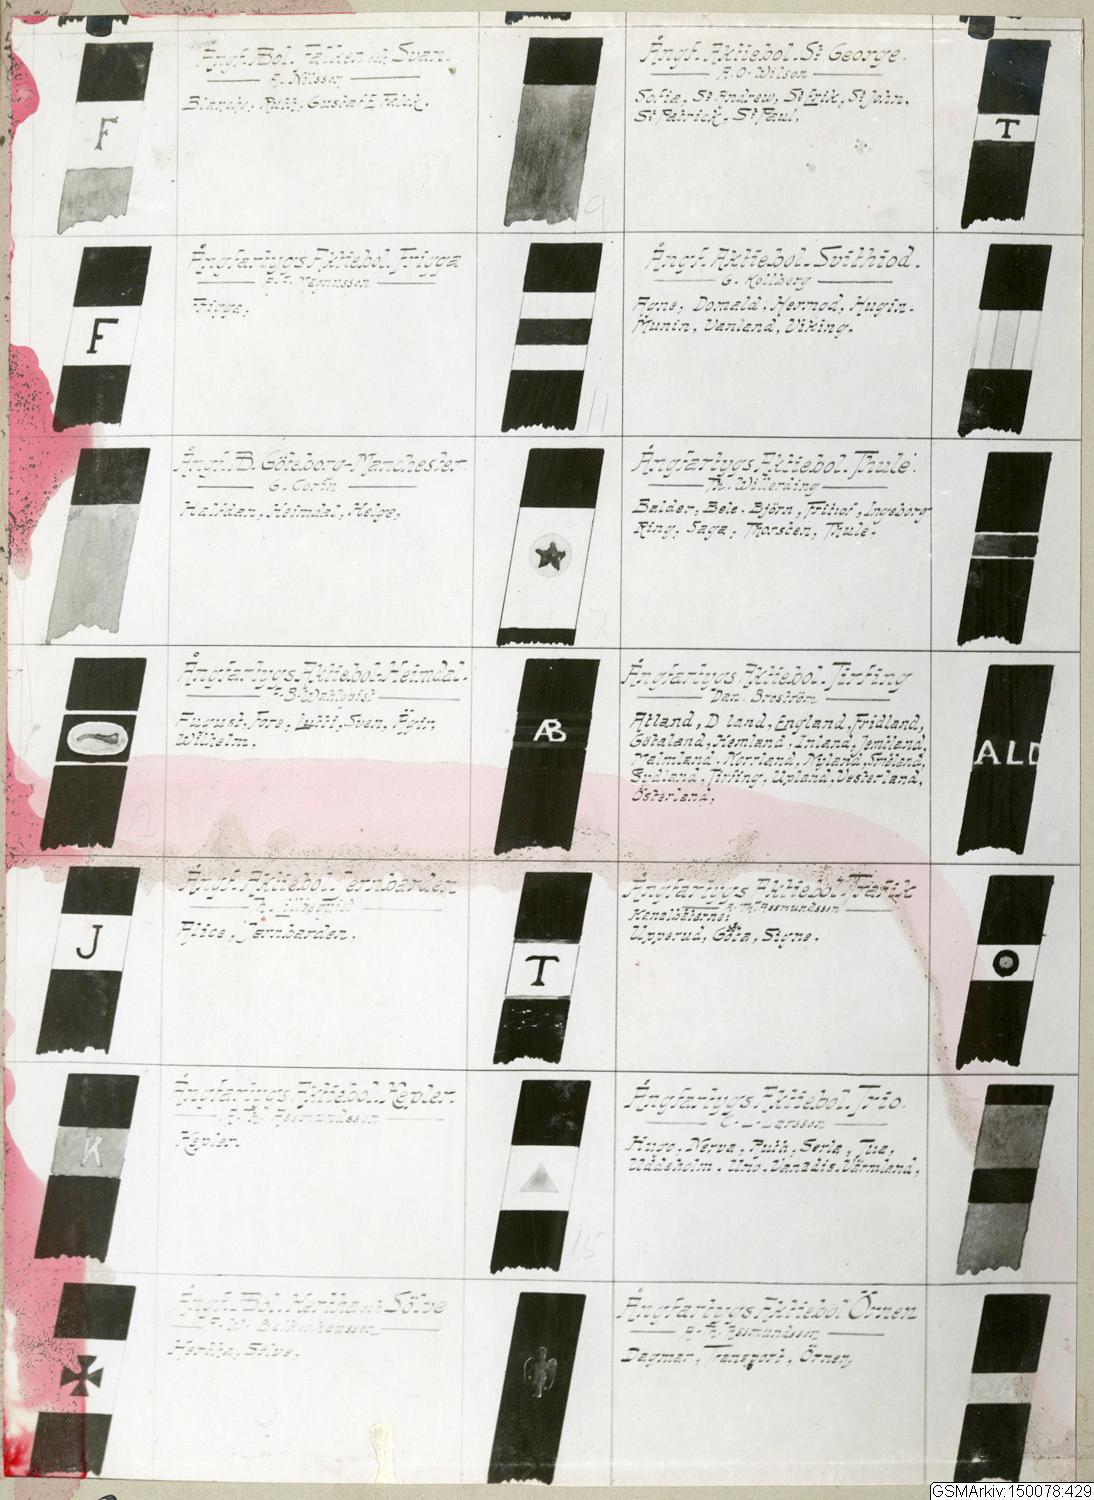 Ångf. Bol. Falken och Svan.
A. Nilsson
Blanche, Ruth, Gustaf E Falck,
F
Ångf. Aktiebol. St George.
A. O. Wilson
Sofia, St Andrew, St Erik, St John,
St Patrick, St Paul.
T
Ångfartygs Aktiebol. Frigga
Magnusson
Frigga,
F
Ångf. Aktiebol. Svithiod.
G. Kollberg
Agne, Domald, Hermod, Hugin.
Munin, Vanland, Viking.
11
Ångf. AB. Göteborg-Manchester.
G. Corin
Halfdan, Heimdal, Helge,
Ångfartygs Aktiebol. Thule.
Th. Willerding
Balder, Bele, Björn, Fritiof, Ingeborg
Ring, Saga, Thorsten, Thule,
Ångfartygs Aktiebol. Heimdal.
August, Tore, Lulli, Sven, Ägir,
Wilhelm,
AB
Ångfartygs Aktiebol. Tirfing
Dan. Broström
Atland, D land, England, Fridland,
Götaland, Hemland, Inland, Jemtland,
Malmland, Norrland, Nyland, Småland,
Sydland, Tirfing, Upland, Vesterland,
Österland,
ALD
Ångf. Aktiebol. Jernbarden
Th. Liljeqvist
Alice, Jernbarden,
J
T
Ångfartygs Aktiebol. Trafik
A. Th. Assmundsson
Kanalbåtarne:
Upperud, Göta, Signe.
O
Ångfartygs Aktiebol. Kepler.
A. Th. Assmundsson
Kepler.
K
Ångfartygs Aktiebol. Trio.
C. L. Larsson
Hugo, Nerva, Ruth, Seria, Tua,
Uddeholm, Uno, Vanadis, Värmland,
15
Ångf. Bol. Hertha och Sölve
Hertha, Sölve.
Ångfartygs Aktiebol Örnen
A. Th. Assmundsson
Dagmar, Transport, Örnen,
GSMArkiv:150078:429